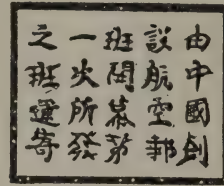 由中國創
設航空郵
班閞幕第
一次所發
之班運寄